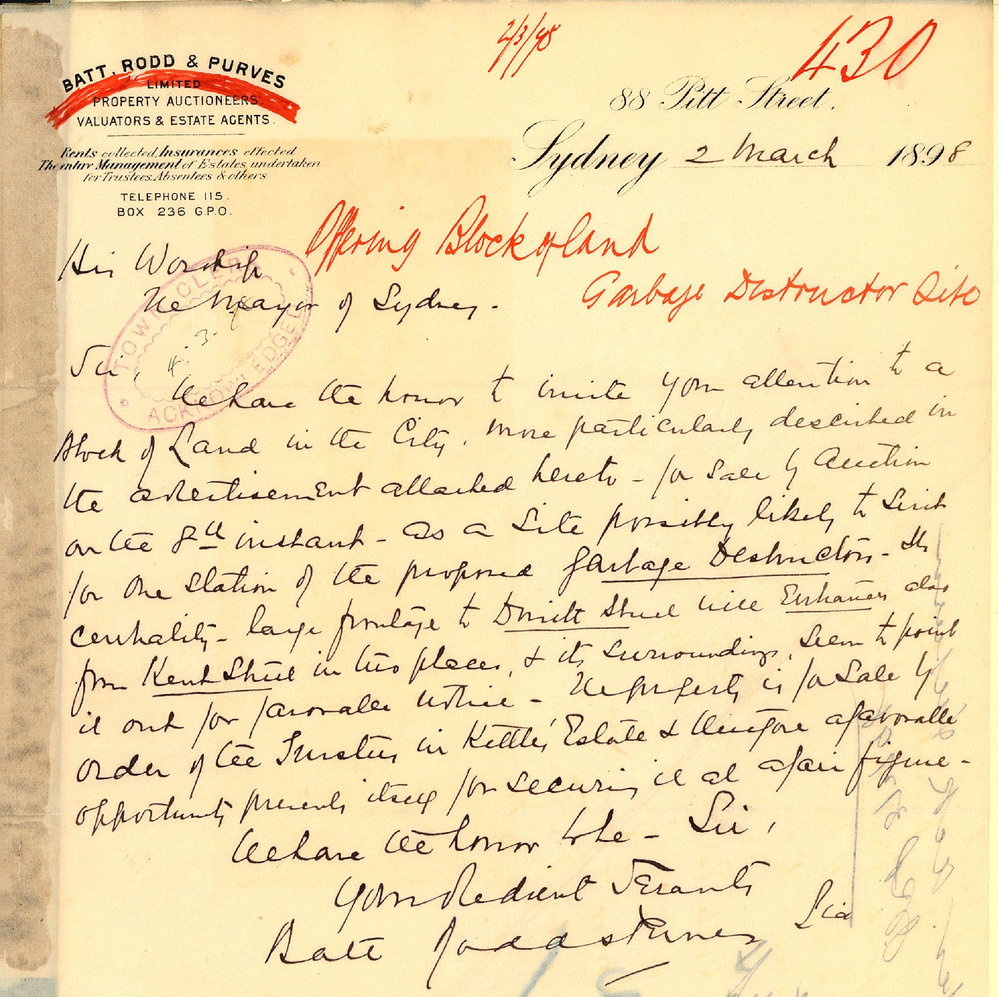 2/3/98
430
BATT, RODD & PURVES
LIMITED
PROPERTY AUCTIONEERS
VALUATORS & ESTATE AGENTS.
Rents collected, Insurances effected
The entire Management of Estates undertaken
for Trustees, Absentees & others
TELEPHONE 115.
BOX 236 G.P.O.
88 Pitt Street.
Sydney 2 March 1898
Offering Block of Land
Garbage Destructor Site
His Worship
The Mayor of Sydney.
TOWN CLERK
4.3.98
ACKNOWLEDGED
Sir
We have the honor to invite your attention to a
Block of Land in the City, more particularly described in
the advertisement attached hereto - for Sale by Auction
on the 8th instant - as a Site possibly likely to Suit
for one Station of the proposed garbage Destructors - Its
centrality - large frontage to Druitt Street with Entrances also
from Kent Street in two places, & its Surroundings, Seem to point
it out for favorable notice - The property is for Sale by
order of the Trustees in Kettle's Estate & therefore a favorable
opportunity presents itself for Securing it at a fair figure -
We have the honor to be - Sir,
Your obedient Servants
Batt Rodd & Purves Ltd